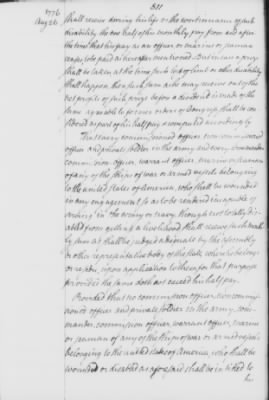 811
1776
Aug 26
shall receive during his life or the continuance of such
disability the one half of his monthly pay from and after
the time that his pay as an officer or marine or seaman
ceases to be paid as hereafter mentioned But in case a prize
shall be taken at the time such loss of limb or other disability
shall happen, then such sum as he may receive out of the
net profits of such prize before a dividend is made of the
same agreeable to former orders of Congress shall be con
sidered as part of his half pay & computed accordingly
That every commissioned officer, non commissioned
officer and private soldier in the army and every commander
commission officer, warrant officer, marine or seaman
of any of the ships of war or armed vessels belonging
to the united states of America, who shall be wounded
in any engagement so as to be rendered incapable of
serving in the army or navy though not totally dis
abled from getting a livelihood shall receive such month
ly sum as shall be judged adequate by the assembly
or other representative body of the state where he belongs
or resides, upon application to them for that purpose
provided the same doth not exceed his half pay.
Provided that no commission officer, non commissi
oned officer and private soldier in the army, com
mander, commission officer, warrant officer, marine
or seaman of any of the ships of war or armed vessels
belonging to the united states of America, who shall be
wounded or disabled as aforesaid shall be intitled to